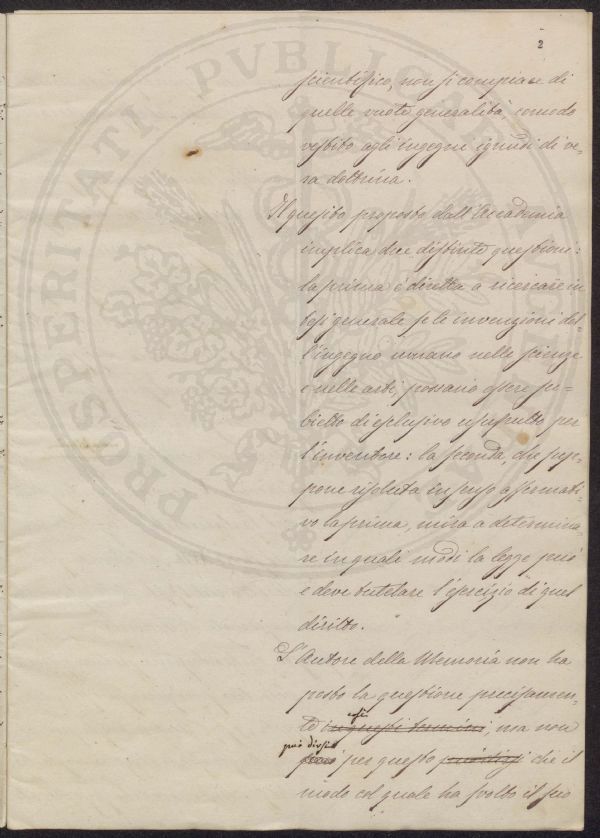 2
scientifico, non si compiace di
quelle vuote generalità, comodo
vestito agli ingegni ignudi di ve-
ra dottrina.
Il quesito proposto dall'Accademia
implica due distinte questioni:
la prima è diretta a ricercare in
tesi generale se le invenzioni del-
l'ingegno umano nelle scienze
e nelle arti, possano essere su-
bietto di esclusivo usufrutto per
l'inventore: la seconda, che sup-
pone risoluta in senso affermati-
vo la prima, mira a determina-
re in quali modi la legge può
e deve tutelare l'esercizio di quel
diritto.
L'Autore della Memoria non ha
posto la questione precisamen-
te in questi termini, ma non
così
può dirsi
però per questo che il
modo col quale ha svolto il suo
PROSPERITATI PVBLICAE